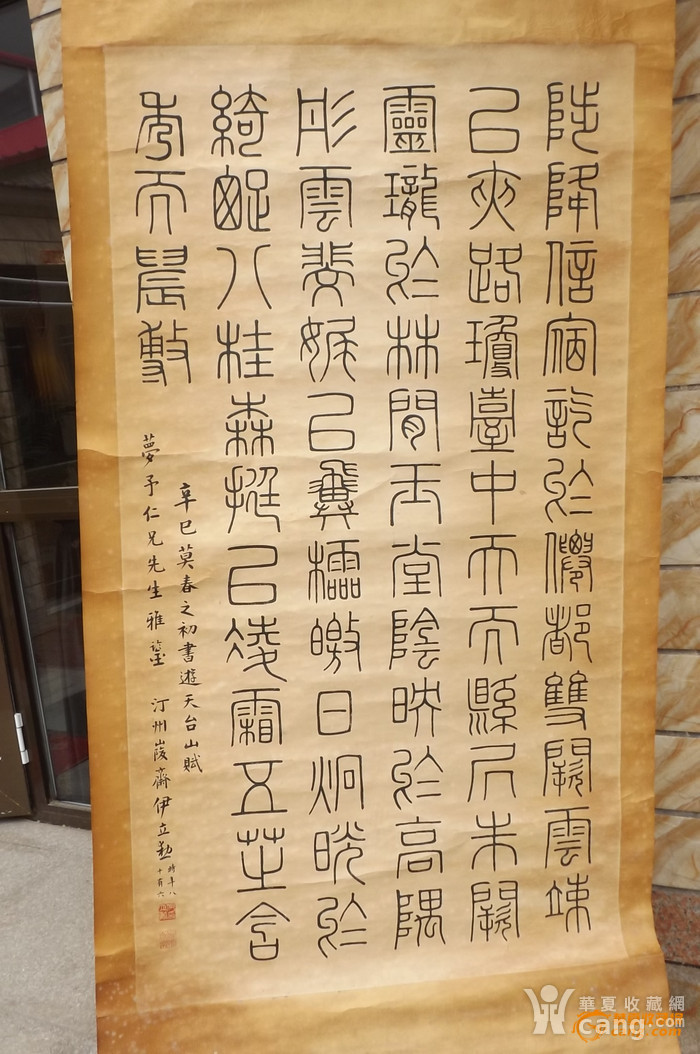 陟降信宿訖於僊都雙闕雲竦
㠯夾路瓊臺中天而縣凥朱闕
靈瓏於林間玉堂陰映於高隅
彤雲斐娓㠯翼櫺皦日炯晄於
綺疏八桂森挺㠯淩霜五芝含
秀而晨敷
辛巳莫春之初書遊天台山賦
夢予仁兄先生雅鑒 汀州峻齋伊立勳 時年八十有六
華夏收藏網
cang.com